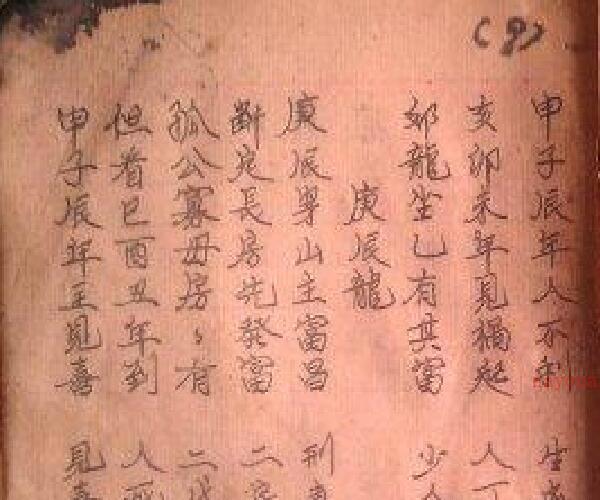 (9)
申子辰年人不利 生
亥卯未年見禍起 人
邪龍坐乙有其富 少
庚辰龍
庚辰穿山主富昌 利
斷定長房先發富 二
孤公寡母房〻有 二
但看巳酉丑年到 人死
申子辰年主見喜 見喜